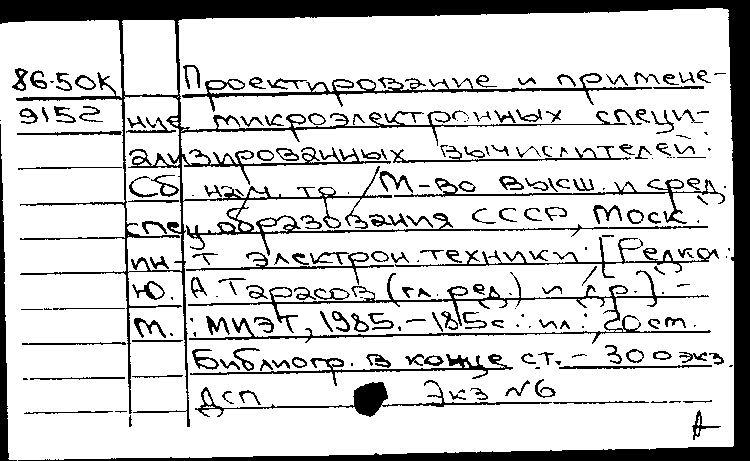 86-50К Проектирование и примене-
9152 ние микроэлектронных специ-
ализированных вычислителей:
Сб. науч. тр. / М-во высш. и сред.
спец. образования СССР, Моск.
ин-т электрон. техники; [Редкол.:
Ю. А. Тарасов (гл. ред.) и др.]. -
М.: МИЭТ, 1985. - 185 с.: ил.; 20 см.
Библиогр. в конце ст. - 300 экз.
ДСП Экз №6